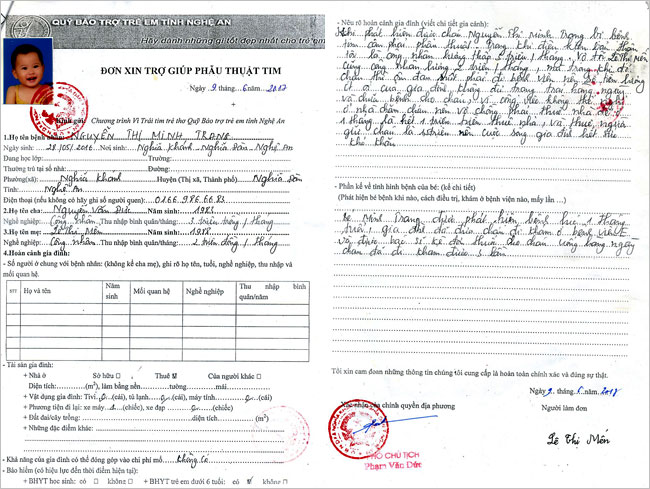 QUỸ BẢO TRỢ TRẺ EM TỈNH NGHỆ AN
Hãy dành những gì tốt đẹp nhất cho trẻ em
ĐƠN XIN TRỢ GIÚP PHẪU THUẬT TIM
Ngày 9 tháng 6 năm 2017
Kính gửi: Chương trình Vì Trái tim trẻ thơ Quỹ Bảo trợ trẻ em tỉnh Nghệ An
1.Họ tên bệnh nhân: NGUYỄN THỊ MINH TRANG
Ngày sinh: 28/05/2016 Nơi sinh: Nghĩa Khánh, Nghĩa Đàn, Nghệ An
Đang học lớp: Trường:
Đường: Thôn:
Phường(xã): Nghĩa Khánh Huyện (Thị xã, Thành phố) Nghĩa Đàn
Tỉnh: Nghệ An
Điện thoại (nếu không có hãy ghi số người quen): 0166.986.6683
2.Họ tên cha: Nguyễn Văn Đức Năm sinh: 1983
Nghề nghiệp: Công nhân Thu nhập bình quân/tháng: 3 triệu đồng / tháng
3.Họ tên mẹ: Lê Thị Mến Năm sinh: 1988
Nghề nghiệp: Công nhân Thu nhập bình quân/tháng: 2 triệu đồng / tháng
4.Hoàn cảnh gia đình:
- Số người ở chung với bệnh nhân: (không kể cha mẹ), ghi rõ họ tên, tuổi, nghề nghiệp, thu nhập và
mối quan hệ.
STT Họ và tên Năm sinh Mối quan hệ Nghề nghiệp Thu nhập bình quân/năm
- Tài sản gia đình:
+ Nhà ở Sở hữu □ Thuê ☑ Của người khác □
Diện tích: (m²), làm bằng nền tường mái
+ Vật dụng gia đình: Tivi (cái), tủ lạnh (cái), máy tính (cái)
+ Phương tiện đi lại: xe máy 1 (chiếc), xe đạp (chiếc)
+ Đất đai/cây trồng: diện tích (m²)
+ Những đặc điểm khác:
- Khả năng của gia đình có thể đóng góp vào chi phí mổ: không có
- Bảo hiểm (có hiệu lực đến thời điểm hiện tại):
+ BHYT học sinh: có □ không □ + BHYT trẻ em dưới 6 tuổi: có ☑ không □
- Nêu rõ hoàn cảnh gia đình (viết chi tiết gia cảnh):
Khi phát hiện được cháu Nguyễn Thị Minh Trang bị bệnh
tim cần phải phẫu thuật. Trong khi điều kiện bản thân
tôi là công nhân lương tháng 3 triệu / tháng. Vợ tôi Lê Thị Mến
cũng công nhân lương 2 triệu / tháng. mà trong khi đó
cháu thì ốm đau suốt phải đi bệnh viện nên tiền lương
ít ỏi của gia đình không đủ để trang trải hàng ngày
và chữa bệnh cho cháu, vì công việc không thể nghỉ
ở nhà chăm cháu nên vợ chồng phải thuê nhà để ở
1 tháng là hết 1 triệu tiền thuê nhà và thuê người
giữ cháu là triệu nên cuộc sống gia đình hết sức
khó khăn
- Phần kể về tình hình bệnh của bé: (kể chi tiết)
(Phát hiện bị bệnh khi nào, cách điều trị, khám ở bệnh viện nào, mấy lần...)
Bé Minh Trang được phát hiện bệnh lúc 1 tháng
tuổi, gia đình đã đưa cháu đi khám ở bệnh viện
và được bác sĩ kê đơn thuốc cho cháu uống hàng ngày
cháu đã đi khám được 3 lần
Tôi xin cam đoan những thông tin chúng tôi cung cấp là hoàn toàn chính xác và đúng sự thật.
Ngày 9 tháng 6 năm 2017
Xác nhận của chính quyền địa phương Người làm đơn
PHÓ CHỦ TỊCH
Phạm Văn Đức
Lê Thị Mến